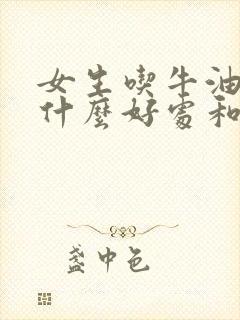 女生喫牛油
什麼好處和
盞中色